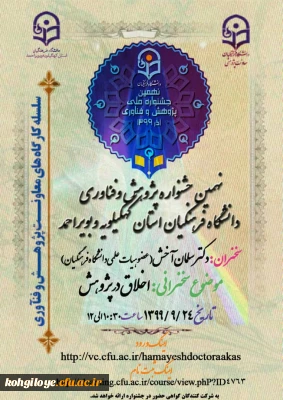 دانشگاه فرهنگیان
نهمین
جشنواره ملی
پژوهش و فناوری
سلسله کارگاه‌های معاونت پژوهشی و فناوری
نهمین جشنواره پژوهش و فناوری
دانشگاه فرهنگیان استان کهگیلویه و بویراحمد
سخنران: دکتر سلمان آتخش (عضو هیات علمی دانشگاه فرهنگیان)
موضوع سخنرانی: اخلاق در پژوهش
تاریخ ۱۳۹۹/۹/۲۴ ساعت ۱۰:۳۰ الی ۱۲
لینک ورود
http://vc.cfu.ac.ir/hamayeshdoctoraakas
لینک ثبت نام
ng.cfu.ac.ir/course/view.php?ID=۴۷۶۳
به شرکت کنندگان گواهی حضور در جشنواره ارائه خواهد شد.
kohgiloye.cfu.ac.ir